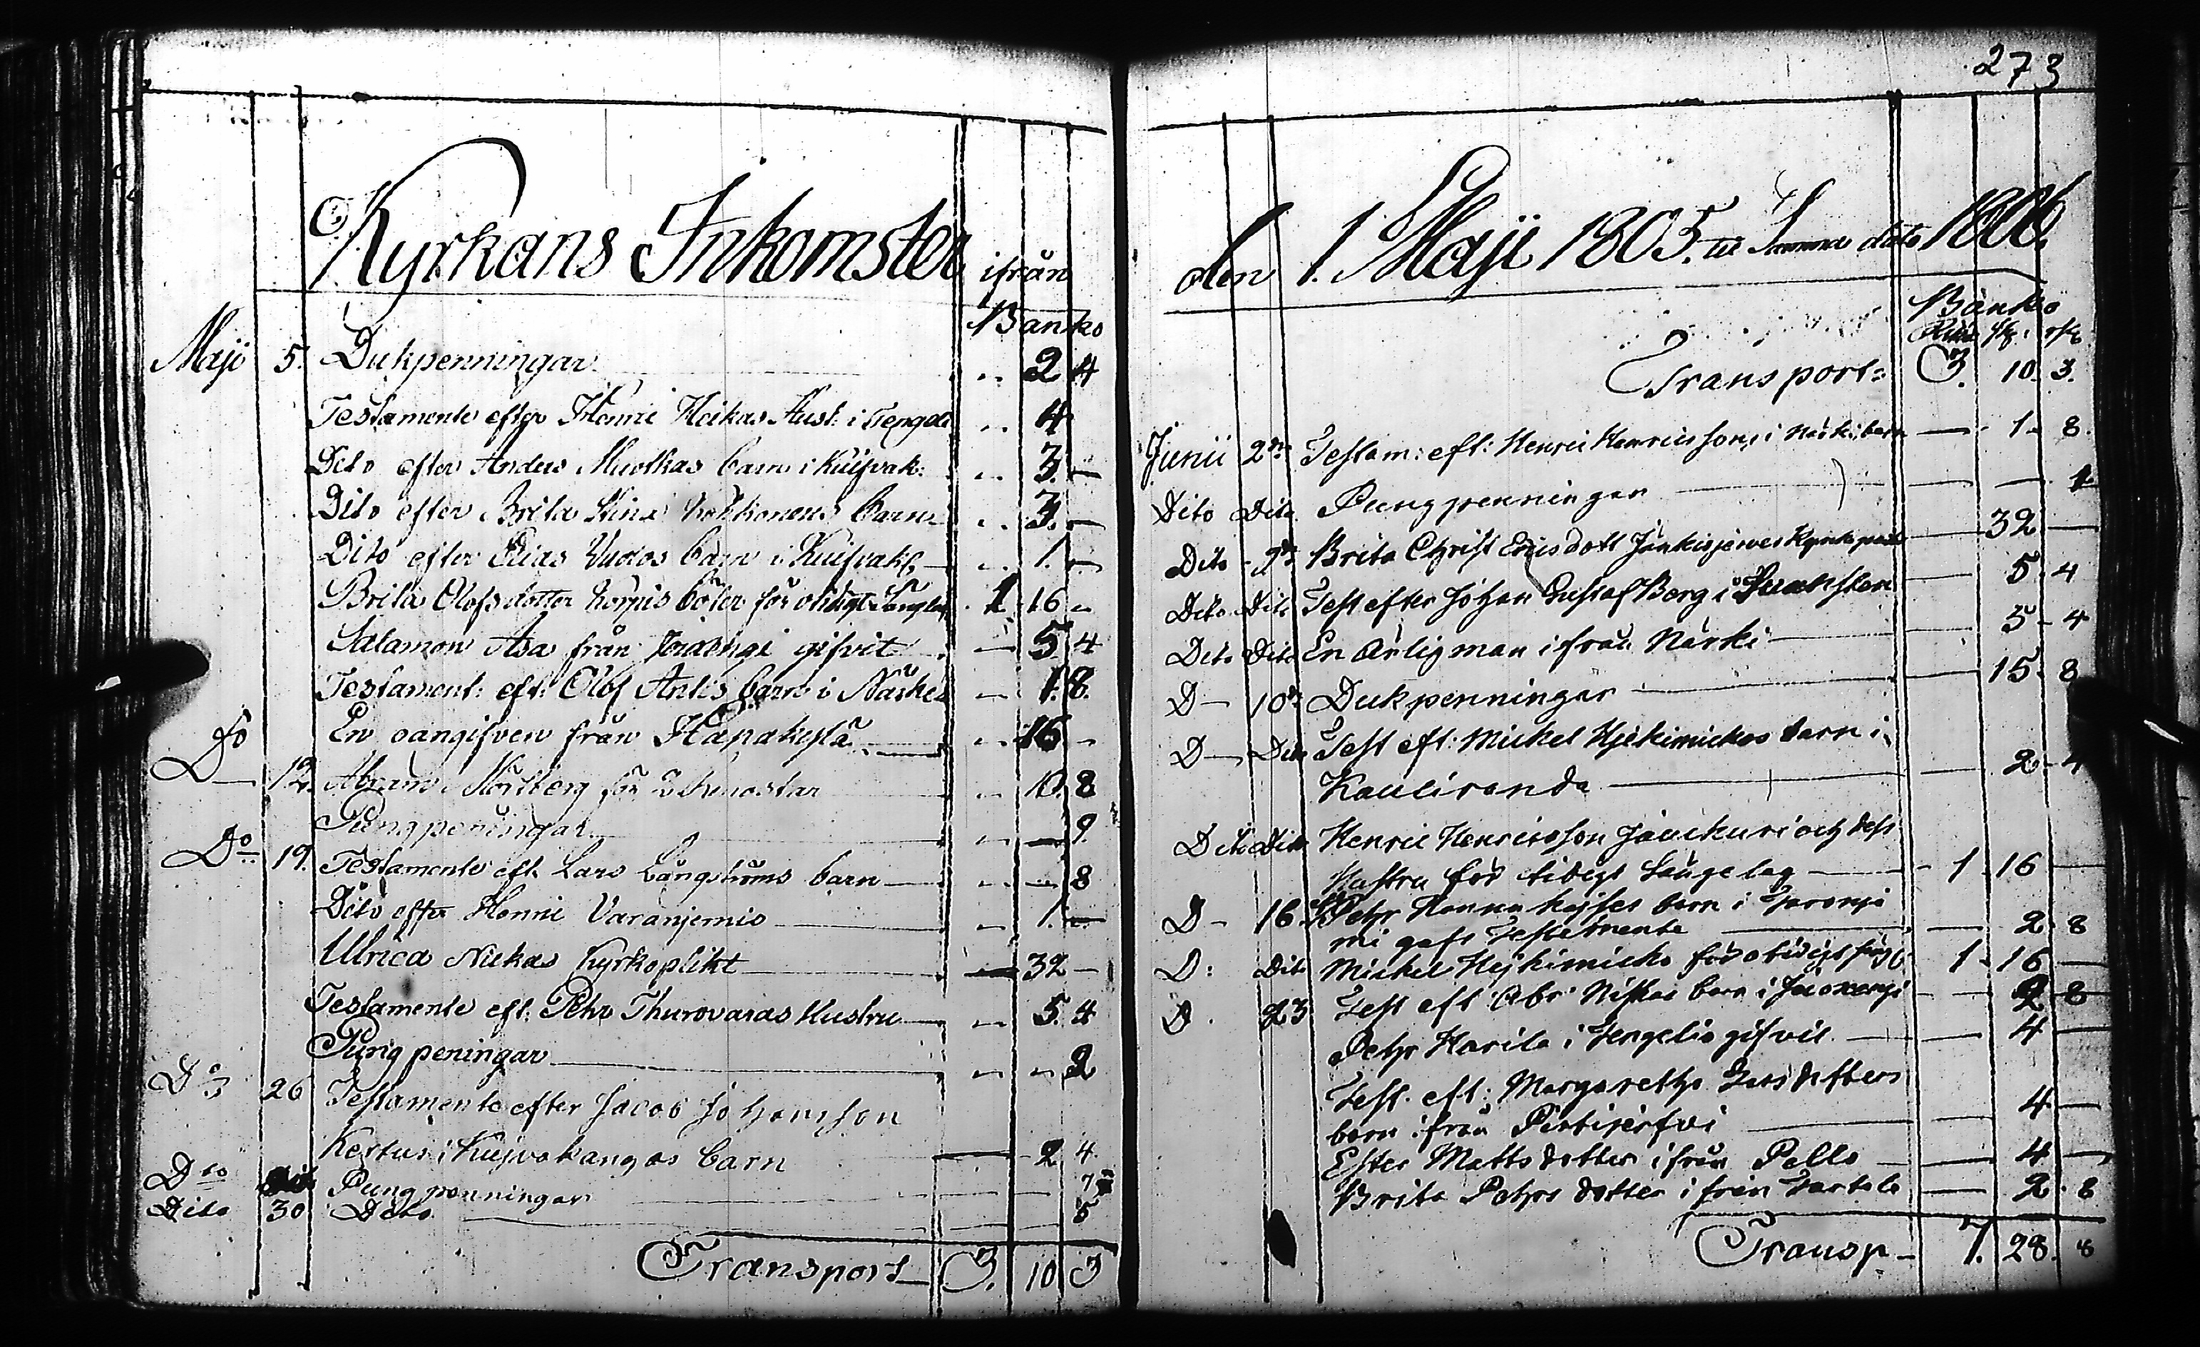 Kyrkans Inkomster ifrån
Banko
Maji 5. Dukpenningar „ 2 4
Testamente efter Henric Heikas Hust: i Tengeli „ 4
Dito efter Anders Muotkas barn i Kuifvak: „ 3. —
Dito efter Brita Stina barn „ 3. —
Dito efter Elias barn i Kuifvak: — „ 1. —
Brita Olofsdotter böter för otidigt Sängelag 1 16 „
Salamon Asa från gifvit — 5 4
Testament: eft: Olof Antis barn i Närkes — 1. 8.
En oangifven från „ 16 —
Do
D— 12. Abram Norberg för 2 „ 10. 8
Pungpeningar „ — 9.
Do 19. Testamente eft. Lars Långströms barn — „ — 8
Dito efter Henric Varanjemio — „ 1. —
Ulrica Niekas kyrkoplikt — 32 —
Testamente eft. Pehr Thurovaras Hustru — „ 5. 4
Pung peningar — „ „ 2
Do 26 Testamente efter Jacob Johansson
Kertus i Kuivakangas barn — 2 4
Dto Dito Pung penningar
Dito 30 Dito 5
Transport — 3. 10 3
273
den 1. Maji 1805. till Samma dato 1806.
Banko
Transport= 3. 10. 3.
Junii 2dn Testam: eft: Henric Henricssons i Närki barn — 1 - 8.
Dito Dito Pungpenningar — — 1
Dito 9dn Brita Christ Ericsdott — 32 —
Dito Dito Test efter Johan Gustaf Berg i — 5 - 4
Dito Dito En ärlig man ifrån Närki — 5 - 4
D— 10dn Dukpenningar — 15 - 8
D— Dito Test eft: Mickel Hejkimickos barn i
Kauliranda — 2 - 4
Dito Dito Henric Henricsson Jauckuri och dess
Hustru för tidigt Sängelag — 1 16 —
D— 16 Pehr Hannu barn i
mi gaft Testamente — 2 - 8
D: Dito Mickel Hejkimicko för otidigt 1 - 16 —
D. 23 Test eft Abr: Niskas barn i — 2 - 8
Pehr Harila i Tengeliö gifvit — 4 —
Test. eft: Margaretha dotters
barn ifrån — 4 —
Ester Matts dotter ifrån Pello — 4 —
Brita Pehrs dotter ifrån — 2. 8
Transp— 7. 28. 8